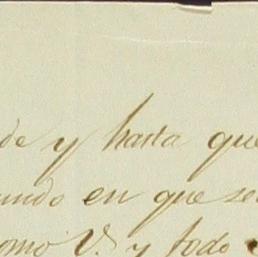 de y hasta que
undo en que se
como V. y todo